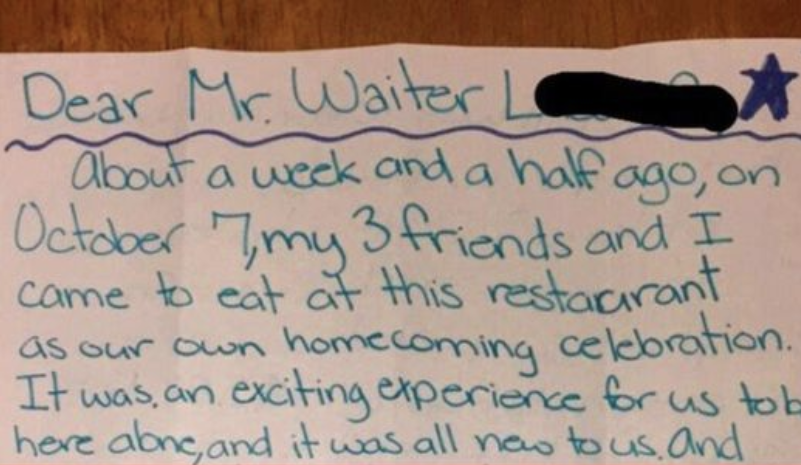 Dear Mr. Waiter L
About a week and a half ago, on
October 7, my 3 friends and I
came to eat at this restaurant
as our own homecoming celebration.
It was an exciting experience for us to b
here alone, and it was all new to us. And